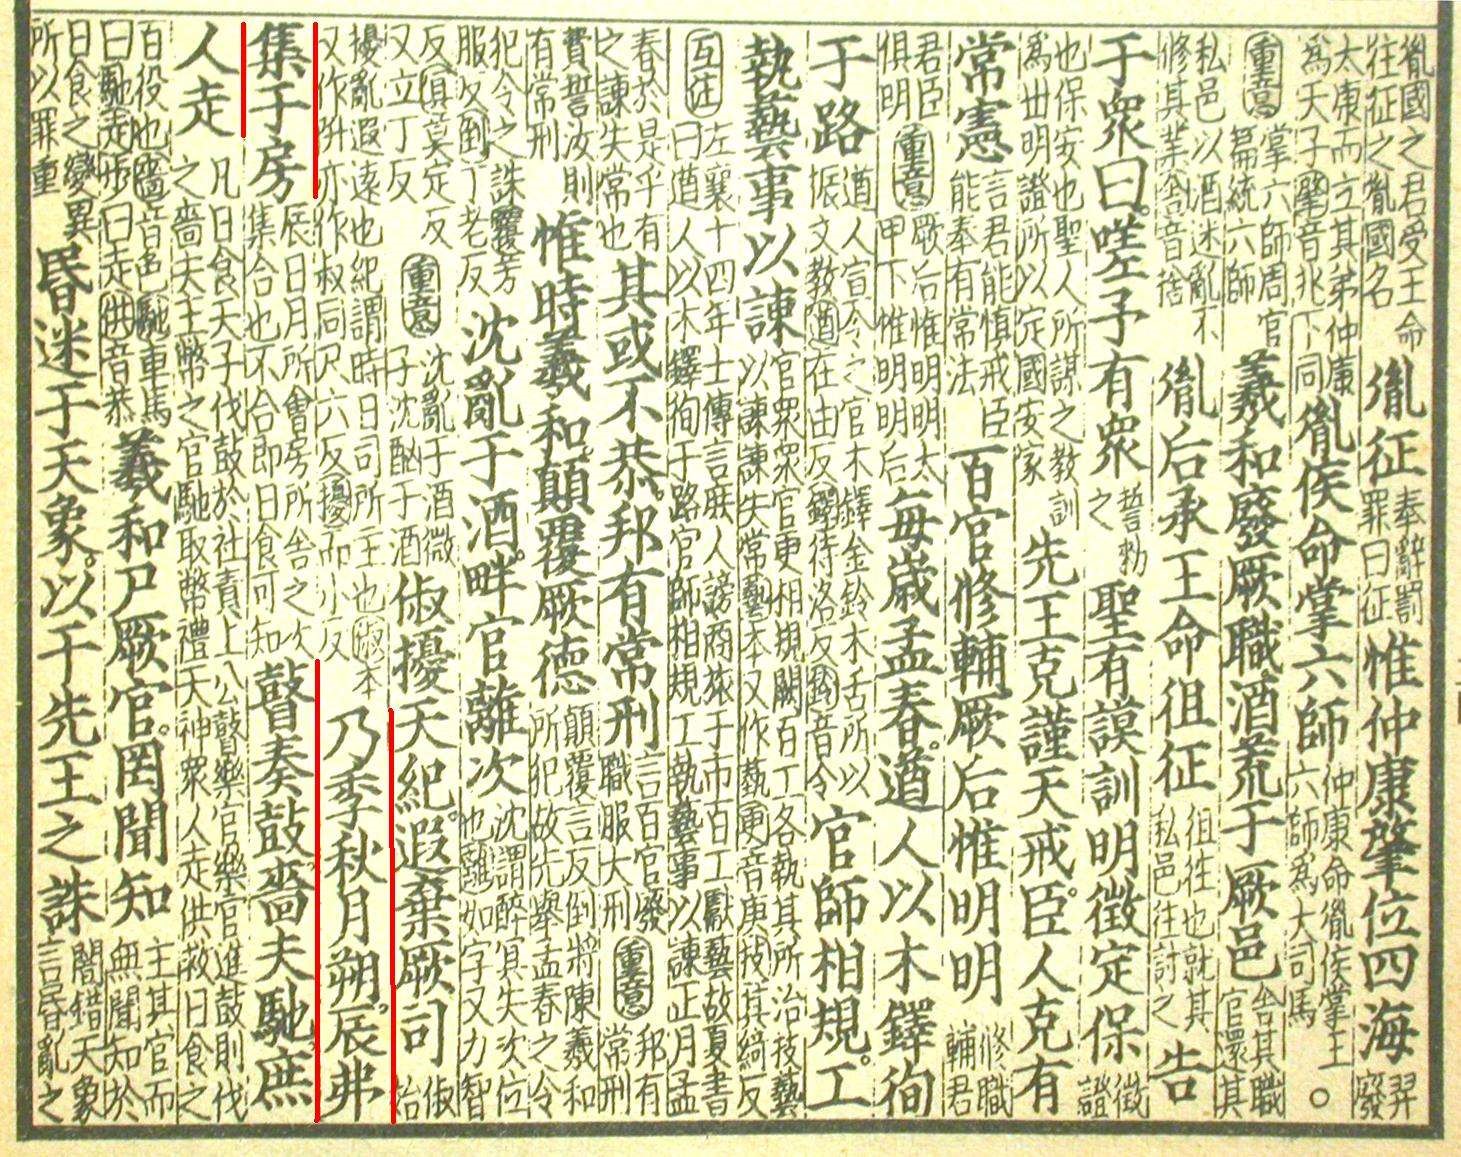 胤國之君受王命往征之胤國名 胤征 奉辭罰罪曰征 惟仲康肇位四海 羿廢
太康而立其弟仲康為天子肇音兆下同 胤侯命掌六師 仲康命胤侯掌王六師為大司馬 ○
重意 掌六師周官篇統六師 羲和廢厥職酒荒于厥邑 舍其職官還其
私邑以酒迷亂不修其業舍音捨 胤后承王命徂征 徂往也就其私邑往討之 告
于眾曰。嗟予有眾 誓勑之 聖有謨訓明徵定保 徵證
也保安也聖人所謀之教訓為世明證所以定國安家 先王克謹天戒。臣人克有
常憲 言君能慎戒臣能奉有常法 百官修輔厥后惟明明 修職輔君
君臣俱明 重意 厥后惟明明太甲下惟明明后 每歲孟春。遒人以木鐸徇
于路 遒人宣令之官木鐸金鈴木舌所以振文教遒在由反鐸待洛反鈴音令 官師相規。工
執藝事以諫 官眾眾官更相規闕百工各執其所治技藝以諫諫失常藝本又作蓺更音庚技其綺反
互註 左襄十四年士傳言庶人謗商旅于市百工獻藝故夏書曰遒人以木鐸徇于路官師相規工執藝事以諫正月孟
春於是乎有之諫失常也 其或不恭。邦有常刑 言百官廢職服大刑 重意 邦有常刑
費誓汝則有常刑 惟時羲和。顛覆厥德 顛覆言反倒將陳羲和所犯故先舉孟春之令
犯令之誅覆芳服反倒丁老反 沈亂于酒。畔官離次 沈謂醉冥失次位也離如字又力智
反俱莫定反又立丁反 重意 沈亂于酒微子沈酗于酒 俶擾天紀。遐棄厥司 俶始
擾亂遐遠也紀謂時日司所主也俶本又作亦作叔同尺六反擾而小反 乃季秋月朔。辰弗
集于房 辰日月所會房所舍之次集合也不合即日食可知 瞽奏鼓嗇夫馳。庶
人走 凡日食天子伐鼓於社責上公瞽樂官樂官進鼓則伐之嗇夫主幣之官馳取幣禮天神眾人走供救日食之
百役也嗇音色馳車馬曰馳走步曰走供音恭 羲和尸厥官。罔聞知 主其官而無聞知於
日食之變異所以罪重 昏迷于天象。以干先王之誅 闇錯天象言昏亂之